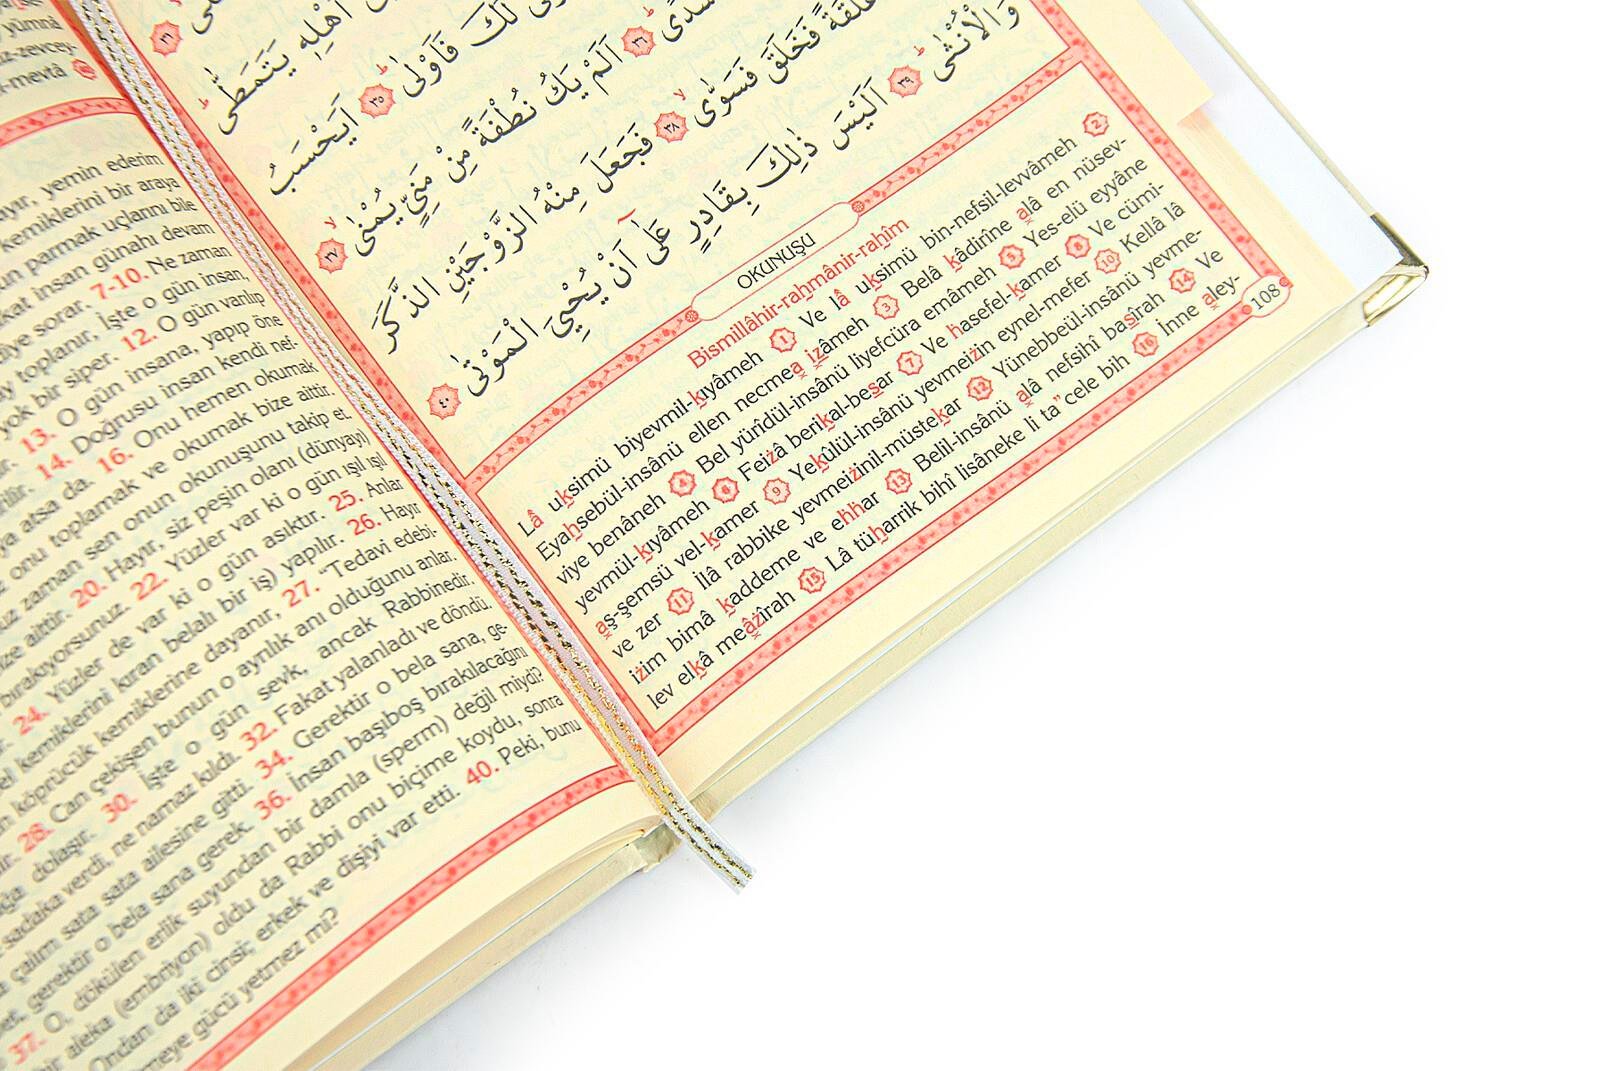 yümnâ
iz-zevcey-
l-mevtâ
yemin ederim
kemiklerini bir araya
parmak uçlarını bile
insan günahı devam
diye sorar. 7-10. Ne zaman
toplanır, İşte o gün insan,
yok bir siper. 12. O gün varılıp
13. O gün insana, yapıp öne
14. Doğrusu insan kendi nef-
atsa da. 16. Onu hemen okumak
onu toplamak ve okumak bize aittir.
zaman sen onun okunuşunu takip et.
aittir. 20. Hayır, siz peşin olanı (dünyayı)
bırakıyorsunuz. 22. Yüzler var ki o gün ışıl ışıl
24. Yüzler de var ki o gün asıktır. 25. Anlar
kemiklerini kıran belalı bir iş) yapılır. 26. Hayır
köprücük kemiklerine dayanır, 27. "Tedavi edebi-
28. Can çekişen bunun o ayrılık anı olduğunu anlar.
dolaşır. 30. İşte o gün sevk, ancak Rabbinedir.
sadaka verdi, ne namaz kıldı. 32. Fakat yalanladı ve döndü.
çalım sata sata ailesine gitti. 34. Gerektir o bela sana, ge-
gerektir o bela sana gerek. 36. İnsan başıboş bırakılacağını
37. O, dökülen erlik suyundan bir damla (sperm) değil miydi?
bir aleka (embriyon) oldu da Rabbi onu biçime koydu, sonra
Ondan da iki cinsi; erkek ve dişiyi var etti. 40. Peki, bunu
gücü yetmez mi?
اَهْلِه۪ يَتَمَطّٰى ﴿٣٣﴾
لَكَ فَاَوْلٰىۜ ﴿٣٥﴾ اَيَحْسَبُ
سُدًىۜ ﴿٣٦﴾ اَلَمْ يَكُ نُطْفَةً مِنْ مَنِيٍّ يُمْنٰىۙ ﴿٣٧﴾
عَلَقَةً فَخَلَقَ فَسَوّٰىۙ ﴿٣٨﴾ فَجَعَلَ مِنْهُ الزَّوْجَيْنِ الذَّكَرَ
وَالْاُنْثٰىۜ ﴿٣٩﴾ اَلَيْسَ ذٰلِكَ بِقَادِرٍ عَلٰٓى اَنْ يُحْيِيَ الْمَوْتٰى ﴿٤٠﴾
OKUNUŞU
Bismillâhir-rahmânir-rahîm
Lâ uksimü biyevmil-kıyâmeh 1 Ve lâ uksimü bin-nefsil-levvâmeh 2
Eyahsebül-insânü ellen necmea izâmeh 3 Belâ kâdirîne alâ en nüsev-
viye benâneh 4 Bel yürîdül-insânü liyefcüra emâmeh 5 Yes-elü eyyâne
yevmül-kıyâmeh 6 Feizâ berikal-besar 7 Ve hasefel-kamer 8 Ve cümi-
aş-şemsü vel-kamer 9 Yekûlül-insânü yevmeizin eynel-mefer 10 Kellâ lâ
ve zer 11 İlâ rabbike yevmeizinil-müstekar 12 Yünebbeül-insânü yevme-
izim bimâ kaddeme ve ehhar 13 Belil-insânü alâ nefsihî basîrah 14 Ve
lev elkâ meâzîrah 15 Lâ tüharrik bihî lisâneke li ta"cele bih 16 İnne aley-
108